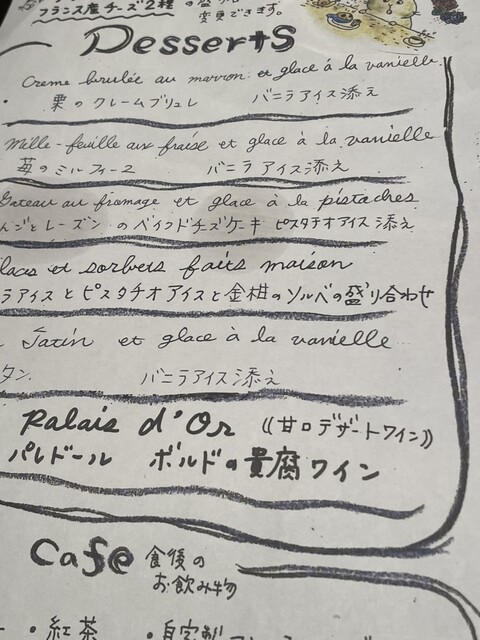 フランス産チーズ2種
変更できます。
Desserts
Creme brulée au marron et glace à la vanielle
栗のクレームブリュレ バニラアイス添え
Mille-feuille aux fraise et glace à la vanielle
苺のミルフィーユ バニラアイス添え
Gateau au fromage et glace à la pistaches
んごとレーズンのベイクドチーズケーキ ピスタチオアイス添え
laces et sorbets faits maison
ラアイスとピスタチオアイスと金柑のソルベの盛り合わせ
Tatin et glace à la vanielle
タン. バニラアイス添え
Palais d'Or ((甘口デザートワイン))
パレドール ボルドの貴腐ワイン
Cafe 食後の
お飲み物
・紅茶 ・自家製